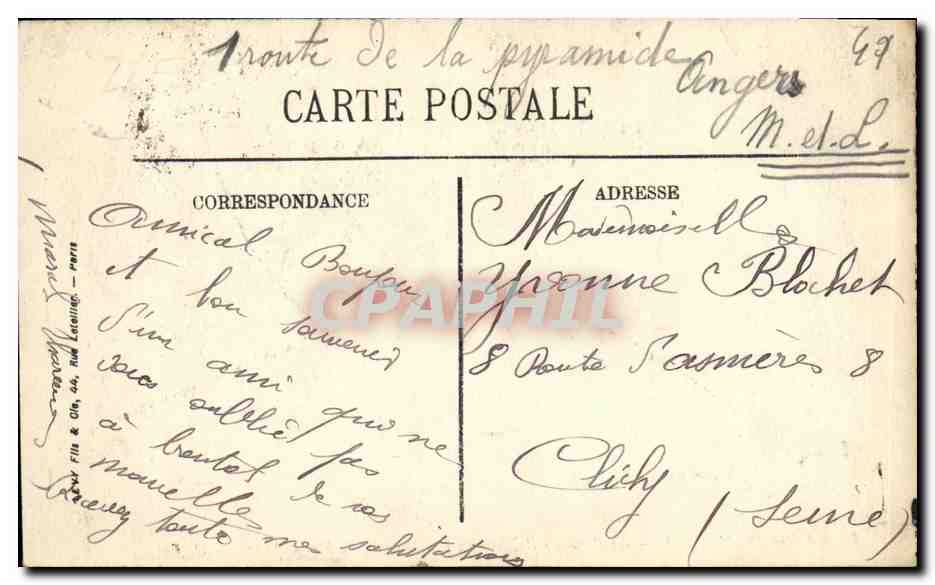 1 route de la pyramide
Angers
49
M. et. L.
CARTE POSTALE
CORRESPONDANCE
ADRESSE
Amical Bonjour
et bon souvenir
d'un ami que ne
vous oublié pas
à bentot de vos
nouvelles
Recevez toute mes salutations
Mademoiselle
Yvonne Blochet
8 Route d'asnières 8
Clichy
(Seine)
LEVY Fils & Cie, 44, Rue Letellier. — Paris
CPAPHIL